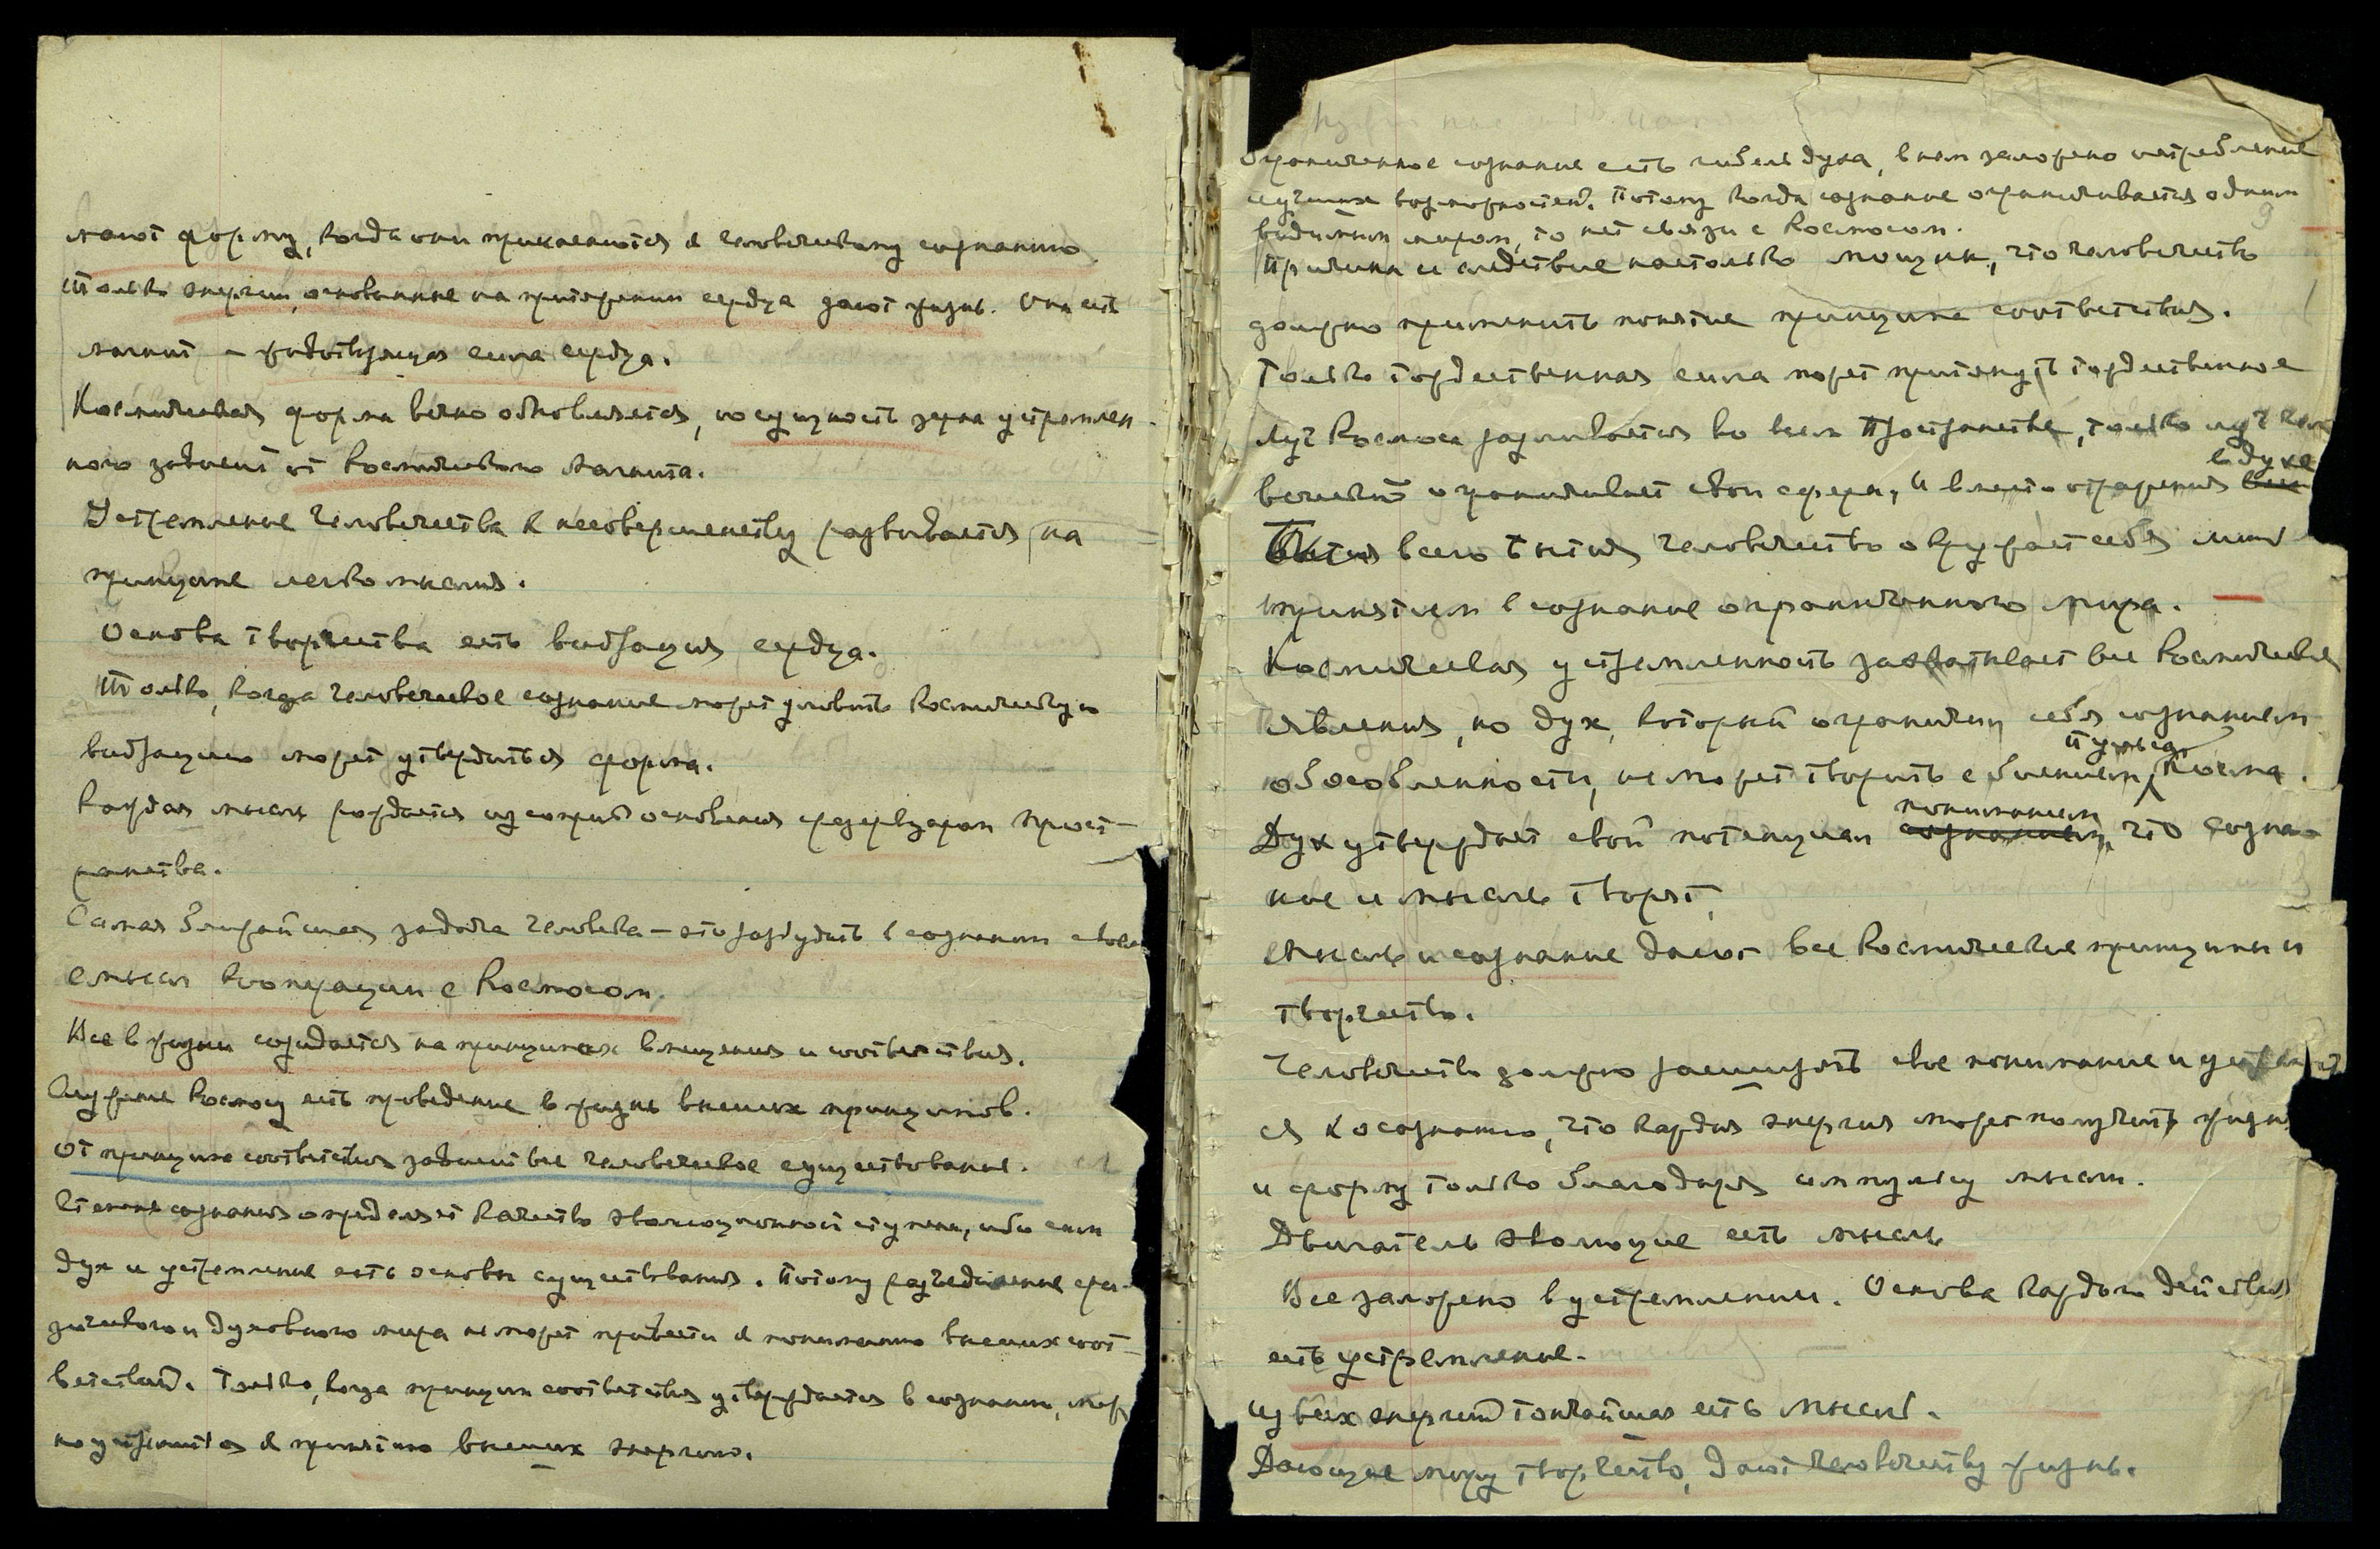 мают форму, когда они прикасаются к человеческому сознанию.
Только энергии, основанные на притяжении сердца дают жизнь. Они есть
магнит – животворящая сила сердца.
Космическая форма вечно обновляется, но сущность зерна устремлен-
ного зависит от Космического Магнита.
Устремление человечества к несовершенству развивается на
принципе легкомыслия.
Основа творчества есть вибрация сердца.
Только, когда человеческое сознание может уловить космическую
вибрацию может утвердиться форма.
Каждая мысль рождается из основания резервуаром прост-
ранства.
Самая ближайшая задача человека – это разбудить в сознании своем
смысл кооперации с Космосом.
Все в жизни созидается на принципах влечения и соответствия.
Служение Космосу есть проведение в жизнь высших принципов.
От принципа соответствия зависит все человеческое существование.
Степень сознания определяет качество эволюционной ступени, ибо
дух и устремление есть основы существования. Потому разъединение физи-
ческого и духовного мира не может привести к пониманию высших соот-
ветствий. Только, когда принцип соответствия утверждается в сознании, мож
но устремиться к принятию высших энергий.
Ограниченное сознание есть гибель духа, в нем заложено истребление
лучших возможностей. Потому когда сознание ограничивается одним
видимым миром, то нет связи с Космосом.
Причина и следствие настолько мощны, что человечество
должно применить понятие принципа соответствия.
Только тождественная сила может притянуть тождественное
Луч Космоса разливается во всем Пространстве, только луч чело
в духе
веческий ограничивает свои сферы, и вместо отражения все
Бытия всего Бытия человечество окружает себя лишь
принятием в сознание ограниченного мира.
Космическая устремленность захватывает все Космические
явления, но дух, который ограничил себя сознанием
пульса
обособленности, не может творить с биением Космоса.
пониманием
Дух утверждает свой потенциал сознанием, что созна-
ние и мысль творят.
Мысль и сознание дают все Космические принципы и
творчество.
Человечество должно расширять свое понимание и устремить
ся к осознанию, что каждая энергия может получить жизнь
и форму только благодаря импульсу мысли.
Двигатель эволюции есть мысль
Все заложено в устремлении. Основа каждого действия
есть устремление.
Из всех энергий тончайшая есть мысль.
Дающие миру творчество, дают человечеству жизнь.